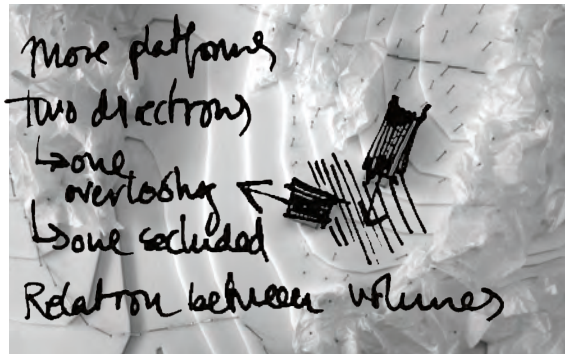 More platforms
Two directions
↳ one
overlooking
↳ one secluded
Relation between volumes